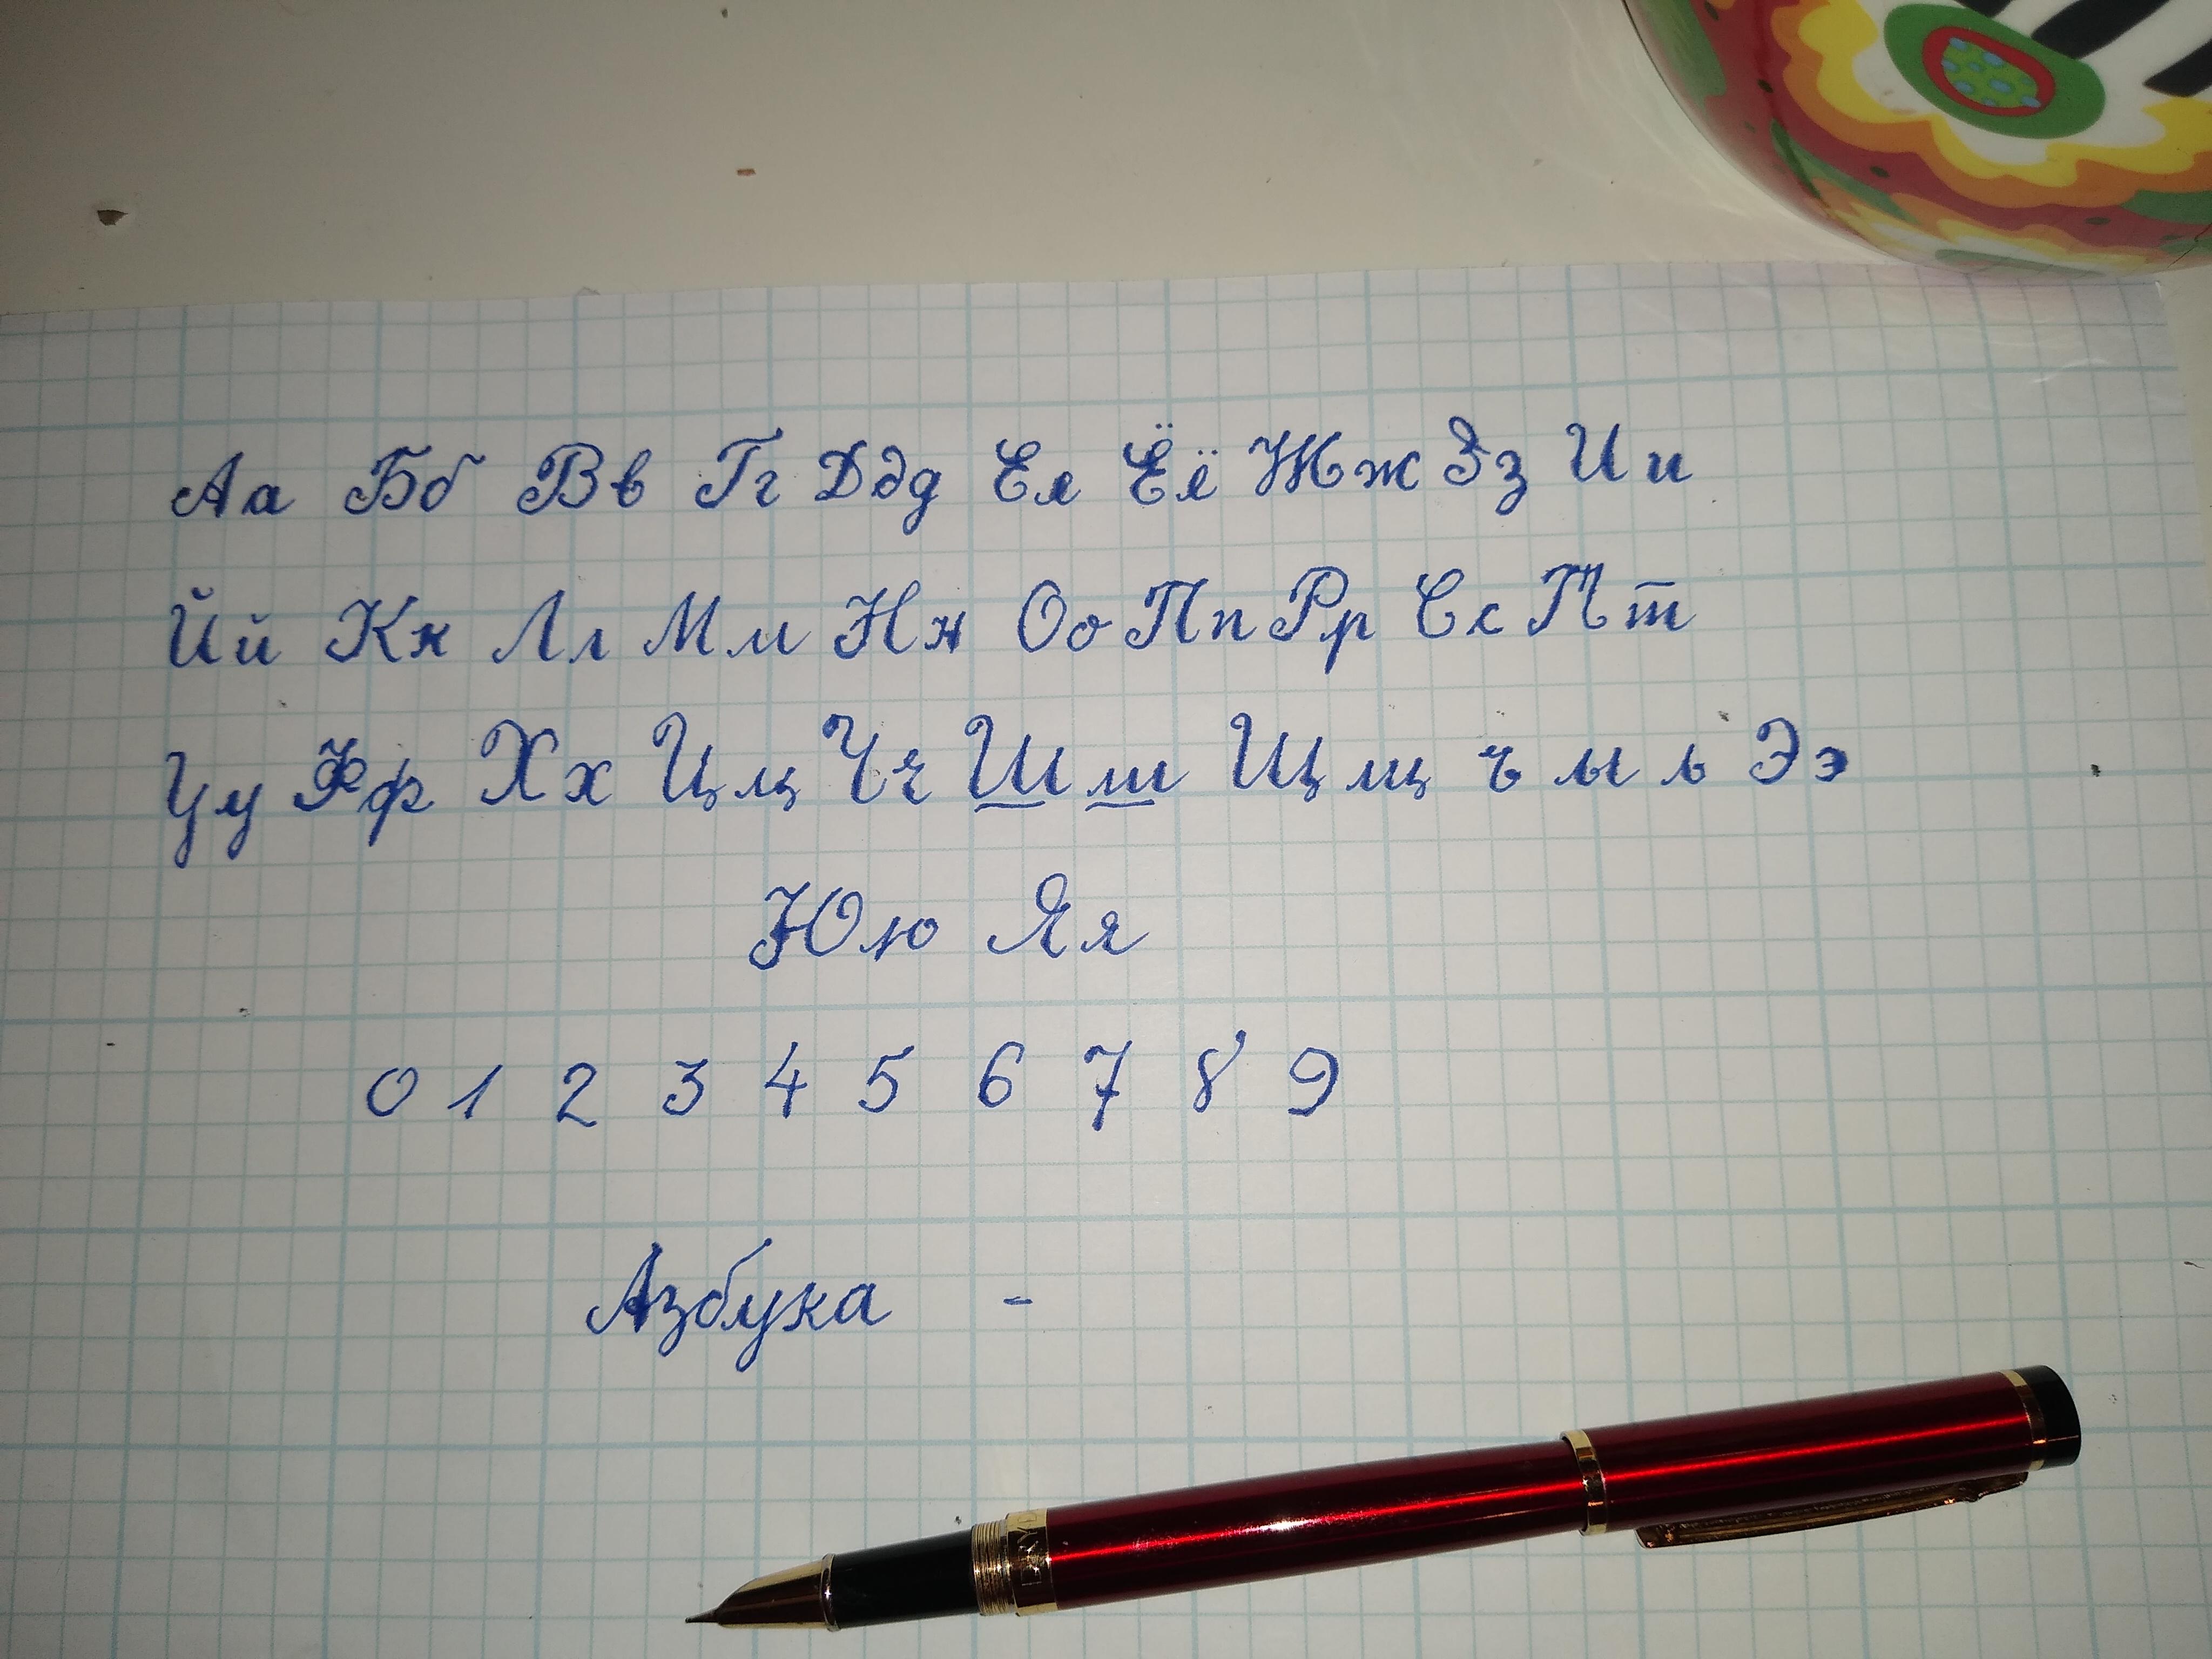 Аа Бб Вв Гг Ддд Ее Ёё Жж Зз Ии
Йй Кк Лл Мм Нн Оо Пп Рр Сс Тт
Уу Фф Хх Цц Чч Шш Щщ ъ ы ь Ээ
Юю Яя
0 1 2 3 4 5 6 7 8 9
Азбука -